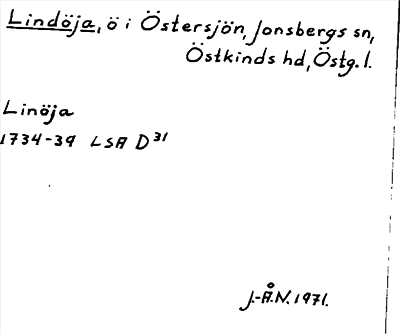 Lindöja, ö i Östersjön, Jonsbergs sn,
Östkinds hd, Östg. l.
Linöja
1734-39 LSA D 31
J.-Å.N. 1971.